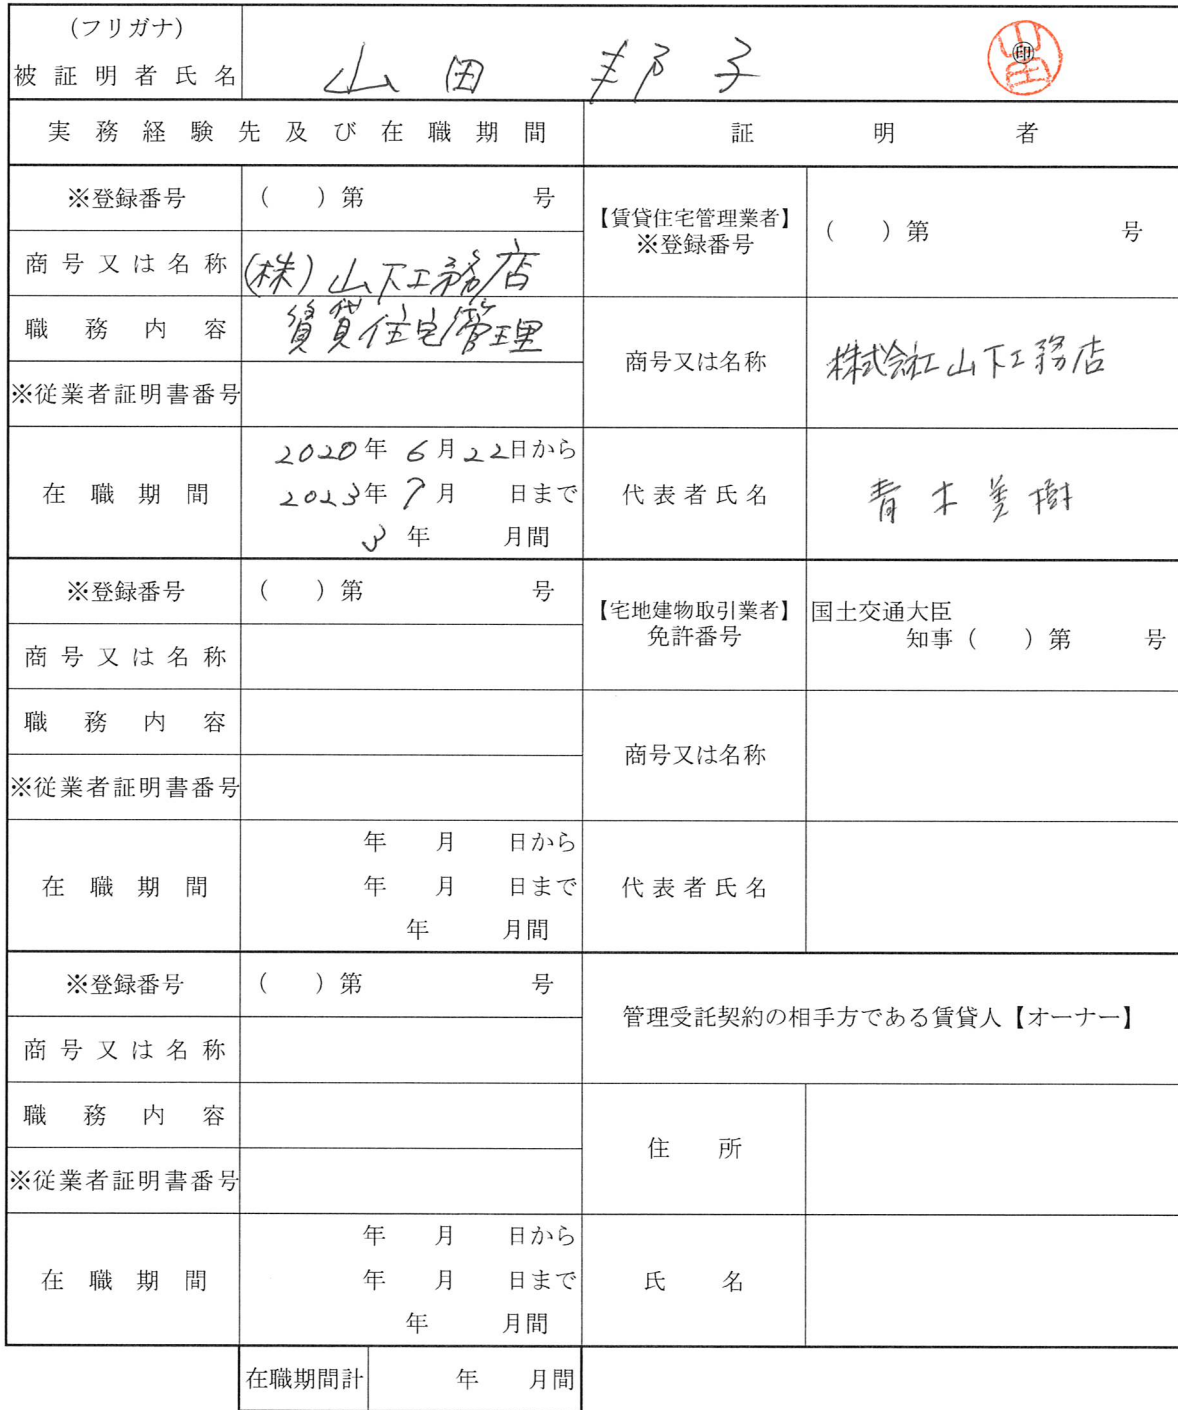 (フリガナ)
被証明者氏名 山田 邦子 ㊞ 山田
実務経験先及び在職期間 証明者
※登録番号 ( ) 第 号
【賃貸住宅管理業者】 ※登録番号 ( ) 第 号
商号又は名称 (株)山下工務店
職務内容 賃貸住宅管理
商号又は名称 株式会社山下工務店
※従業者証明書番号
在職期間
2020年 6月22日から
2023年 7月 日まで
3年 月間
代表者氏名 青木美樹
※登録番号 ( ) 第 号
【宅地建物取引業者】 免許番号
国土交通大臣
知事 ( ) 第 号
商号又は名称
職務内容
商号又は名称
※従業者証明書番号
在職期間
年 月 日から
年 月 日まで
年 月間
代表者氏名
※登録番号 ( ) 第 号
管理受託契約の相手方である賃貸人【オーナー】
商号又は名称
職務内容
住所
※従業者証明書番号
在職期間
年 月 日から
年 月 日まで
年 月間
氏名
在職期間計 年 月間